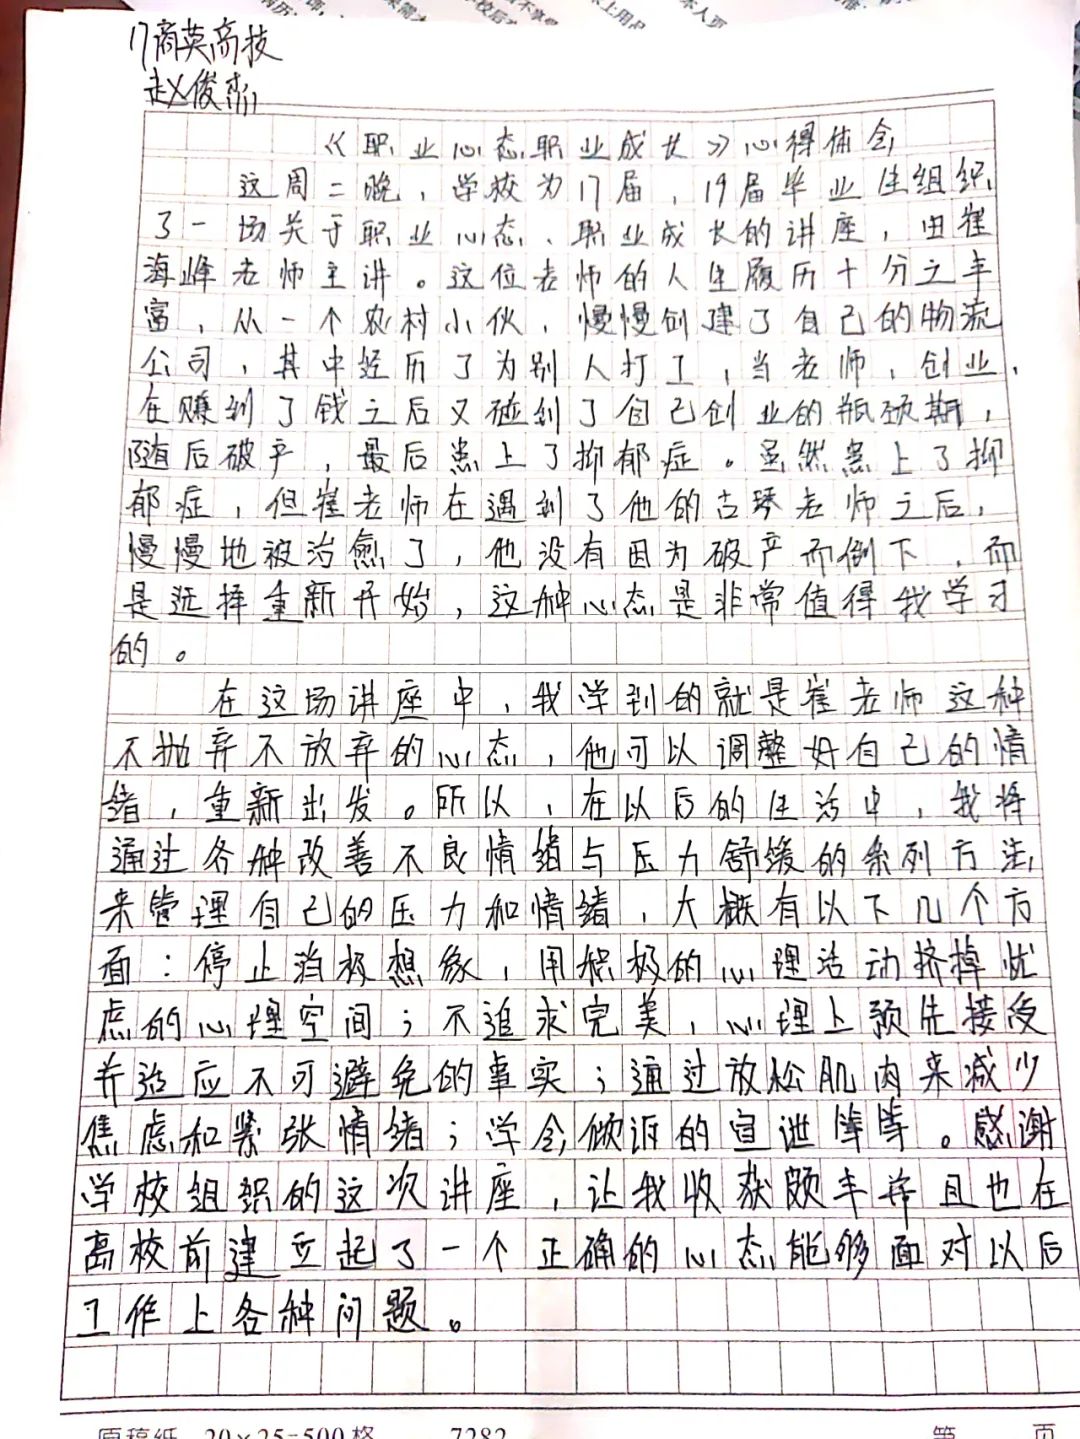 17商英高技
赵俊彬
《职业心态职业成长》心得体会
这周二晚，学校为17届，19届毕业生组织
了一场关于职业心态、职业成长的讲座，由崔
海峰老师主讲。这位老师的人生履历十分之丰
富，从一个农村小伙，慢慢创建了自己的物流
公司，其中经历了为别人打工，当老师，创业，
在赚到了钱之后又碰到了自己创业的瓶颈期，
随后破产，最后患上了抑郁症。虽然患上了抑
郁症，但崔老师在遇到了他的古琴老师之后，
慢慢地被治愈了，他没有因为破产而倒下，而
是选择重新开始，这种心态是非常值得我学习
的。
在这场讲座中，我学到的就是崔老师这种
不抛弃不放弃的心态，他可以调整好自己的情
绪，重新出发。所以，在以后的生活中，我将
通过各种改善不良情绪与压力舒缓的系列方法，
来管理自己的压力和情绪，大概有以下几个方
面：停止消极想象，用积极的心理活动挤掉忧
虑的心理空间；不追求完美，心理上预先接受
并适应不可避免的事实；通过放松肌肉来减少
焦虑和紧张情绪；学会倾诉的宣泄等等。感谢
学校组织的这次讲座，让我收获颇丰并且也在
离校前建立起了一个正确的心态能够面对以后
工作上各种问题。
20×25=500格
7282
第
页